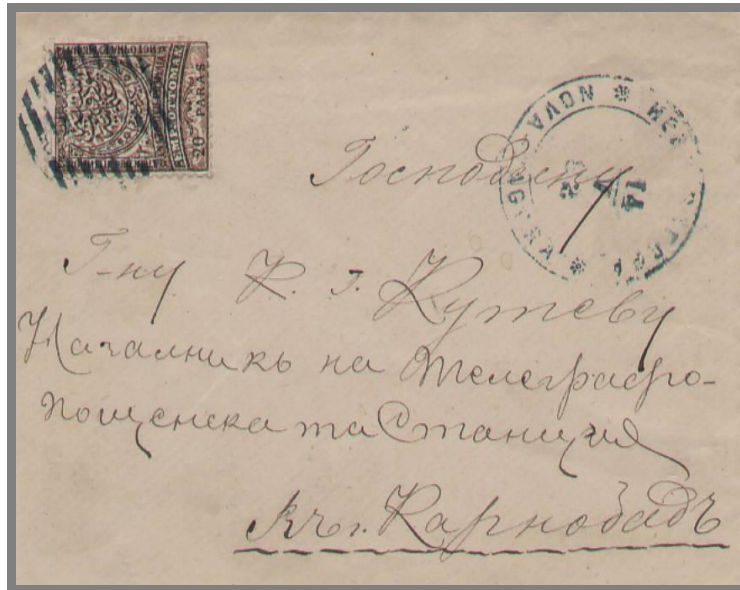 EMP: OTTOMAN
20 PARAS
NOVA
14
Господину
Г-ну К. г. Кутеву
Началникъ на Телеграфо-
пощенска та Станция
Къ г. Карнобадъ